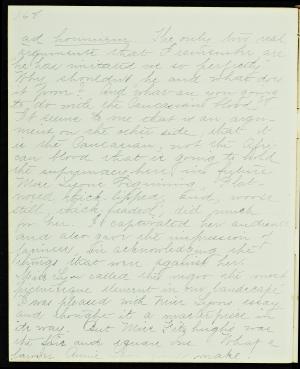 ad hominem. The only two real
arguments that I remember are
he has imitated us so perfectly.
Why shouldn't he and what does
it prove? And what are you going
to do with the Caucasian blood?
It seems to me that is an argu-
ment on the other side, that it
is the Caucasian, not the Afri-
can blood that is going to hold
the supremacy here, in future
Miss Lyons beginning, "Flat-
nosed, thick lipped, and, worse
still, thick headed, did much
for her. It captivated her audience
and also gave the impression of
fairness, in acknowledging the
things that were against her.
Miss L. called the negro the most
picturesque element in our landscape.
I was pleased with Miss Lyons essay
and thought it a masterpiece in
its way. But Miss Fitzhughs was
the fair and square one. What a
lawyer Annie make!